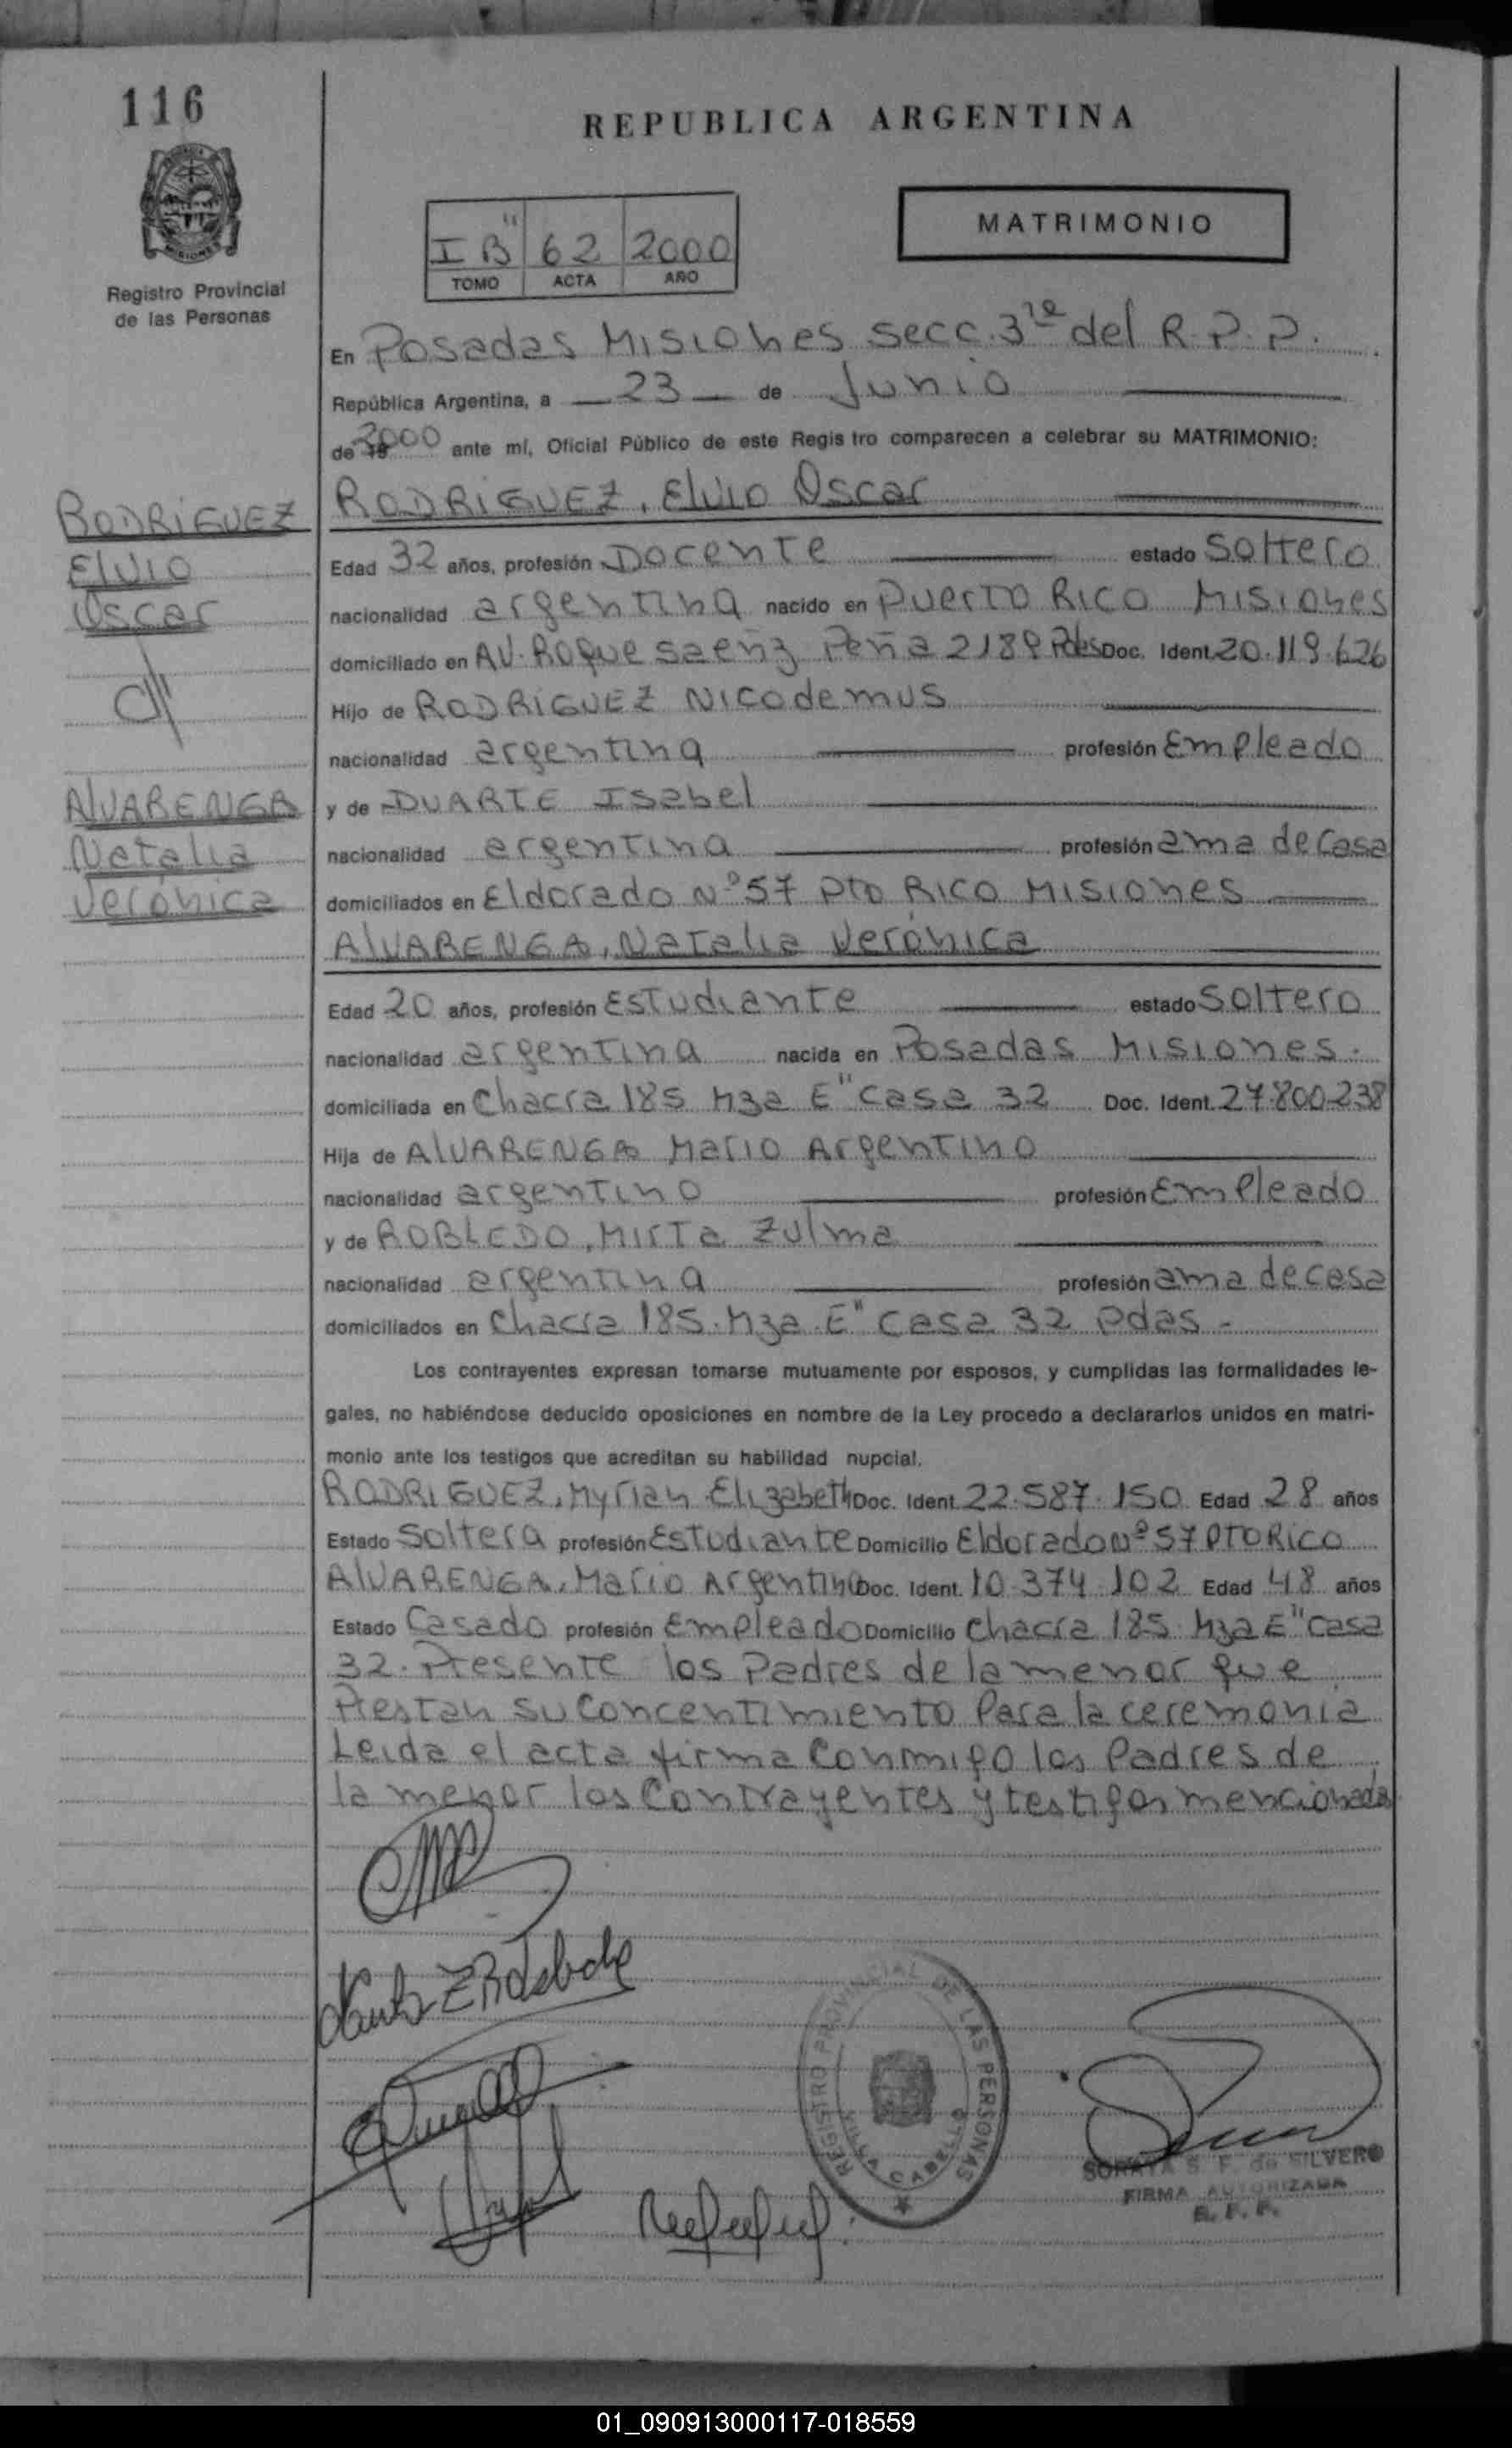 116
REPUBLICA ARGENTINA
Registro Provincial
de las Personas
I B" 62 2000
TOMO ACTA AÑO
MATRIMONIO
En Posadas Misiones Secc. 3ra del R.P.P.
República Argentina, a 23 de Junio
de 2000 ante mí, Oficial Público de este Regis tro comparecen a celebrar su MATRIMONIO:
RODRIGUEZ
Elvio
Oscar
RODRIGUEZ, Elvio Oscar
Edad 32 años, profesión Docente estado Soltero
nacionalidad argentina nacido en Puerto Rico Misiones
domiciliado en AV. Roque Saenz Peña 2189 Pdas Doc. Ident. 20.119.626
Hijo de RODRIGUEZ Nicodemus
nacionalidad argentina profesión Empleado
ALVARENGA
Natalia
Verónica
y de DUARTE Isabel
nacionalidad argentina profesión ama de casa
domiciliados en Eldorado Nº 57 Pto Rico Misiones
ALVARENGA, Natalia Verónica
Edad 20 años, profesión Estudiante estado Soltero
nacionalidad argentina nacida en Posadas Misiones.
domiciliada en Chacra 185 Mza E" Casa 32 Doc. Ident. 27.800.238
Hija de ALVARENGA Mario Argentino
nacionalidad argentino profesión Empleado
y de ROBLEDO, Mirta Zulma
nacionalidad argentina profesión ama de casa
domiciliados en Chacra 185. Mza. E" Casa 32 Pdas -
Los contrayentes expresan tomarse mutuamente por esposos, y cumplidas las formalidades le-
gales, no habiéndose deducido oposiciones en nombre de la Ley procedo a declararlos unidos en matri-
monio ante los testigos que acreditan su habilidad nupcial.
RODRIGUEZ, Myrian Elizabeth Doc. Ident. 22.587.150 Edad 28 años
Estado Soltera profesión Estudiante Domicilio Eldorado Nº 57 Pto Rico
ALVARENGA, Mario Argentino Doc. Ident. 10.374.102 Edad 48 años
Estado Casado profesión Empleado Domicilio Chacra 185 Mza E" Casa
32. Presente los Padres de la menor que
Prestan su Concentimiento Para la ceremonia
Leida el acta firma Conmigo los Padres de
la menor los Contrayentes y testigos mencionados
REGISTRO PROVINCIAL DE LAS PERSONAS
VILLA CABELLO
SORAYA S. F. de SILVERO
FIRMA AUTORIZADA
R. P. P.
01_090913000117-018559